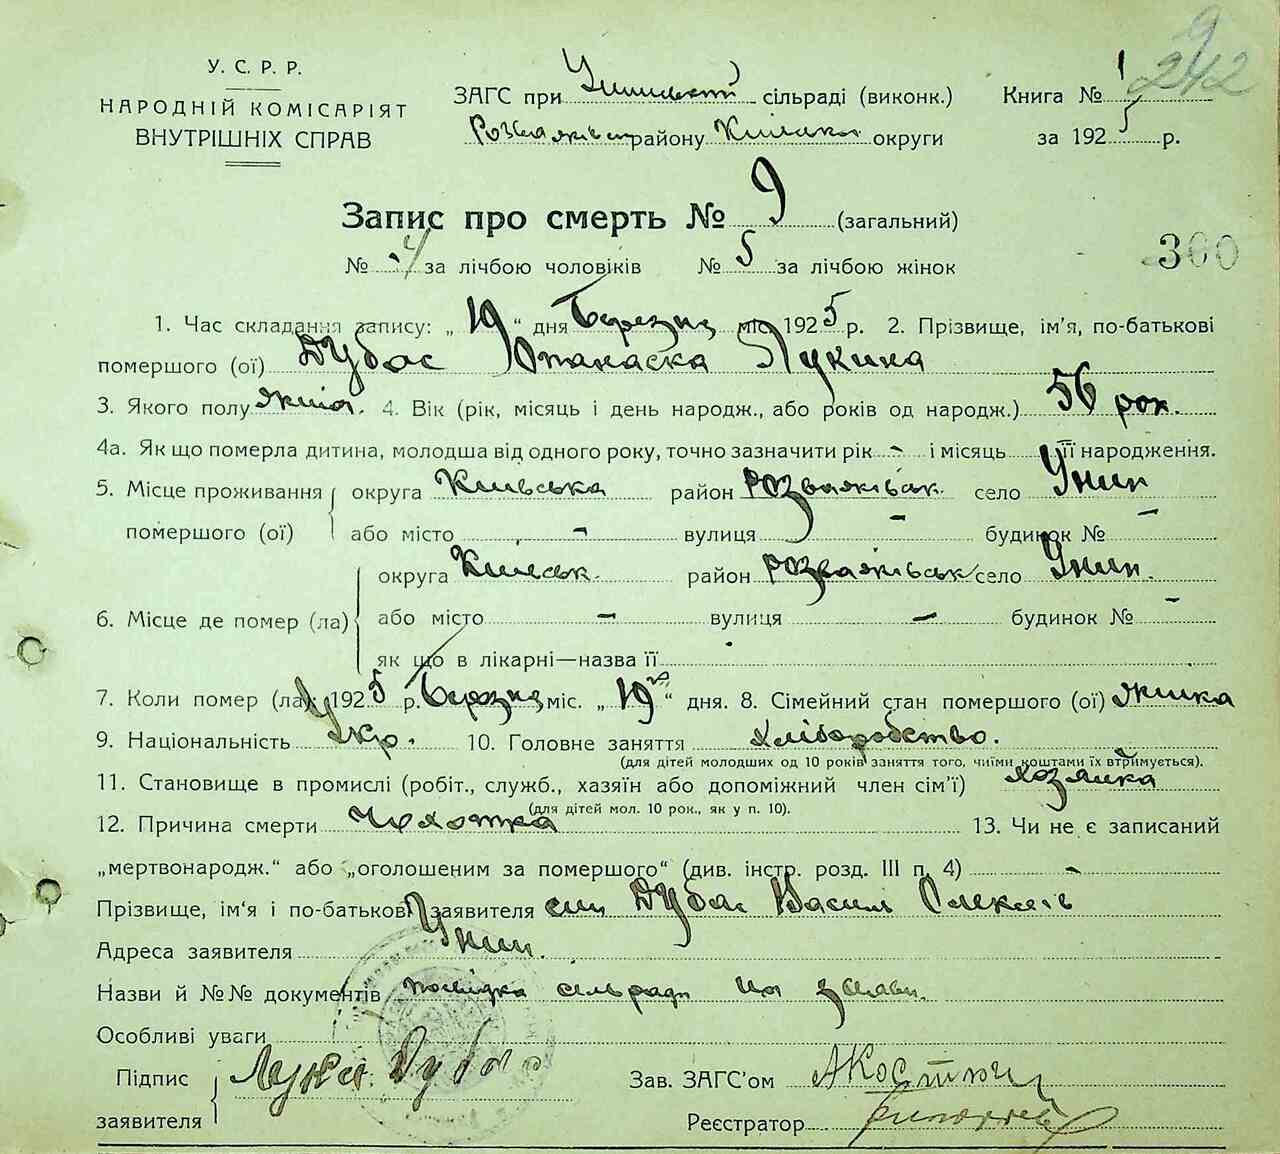 242
У. С. Р. Р.
НАРОДНІЙ КОМІСАРІЯТ
ВНУТРІШНІХ СПРАВ
ЗАГС при сільраді (виконк.)
Книга № 1
району округи
за 1925 р.
Запис про смерть № 9 (загальний)
№ 4 за лічбою чоловіків № 5 за лічбою жінок
300
1. Час складання запису: „ 19 “ дня Березня міс. 1925 р. 2. Прізвище, ім’я, по-батькові
помершого (ої) Дубас Опанаска Лукина
3. Якого полу жіноч. 4. Вік (рік, місяць і день народж., або років од народж.) 56 рок.
4а. Як що померла дитина, молодша від одного року, точно зазначити рік - і місяць її народження.
5. Місце проживання помершого (ої) округа Київська район Розважівськ. село Унин
або місто - вулиця - будинок № -
6. Місце де помер (ла) округа Київськ. район Розважівськ село Унин.
або місто - вулиця - будинок № -
як що в лікарні—назва її
7. Коли помер (ла) 1925 р. Березня міс. „ 19 “ дня. 8. Сімейний стан помершого (ої)
9. Національність Укр. 10. Головне заняття хліборобство.
(для дітей молодших од 10 років заняття того, чиїми коштами їх втримується).
11. Становище в промислі (робіт., служб., хазяїн або допоміжний член сім’ї) хозяйка
(для дітей мол. 10 рок., як у п. 10).
12. Причина смерти 13. Чи не є записаний
„мертвонародж.“ або „оголошеним за помершого“ (див. інстр. розд. III п. 4) -
Прізвище, ім’я і по-батькові заявителя син Дубас Василь
Адреса заявителя Унин.
Назви й №№ документів посвідка сільради на
Особливі уваги
Підпис заявителя Дубас
Зав. ЗАГС’ом
Реєстратор